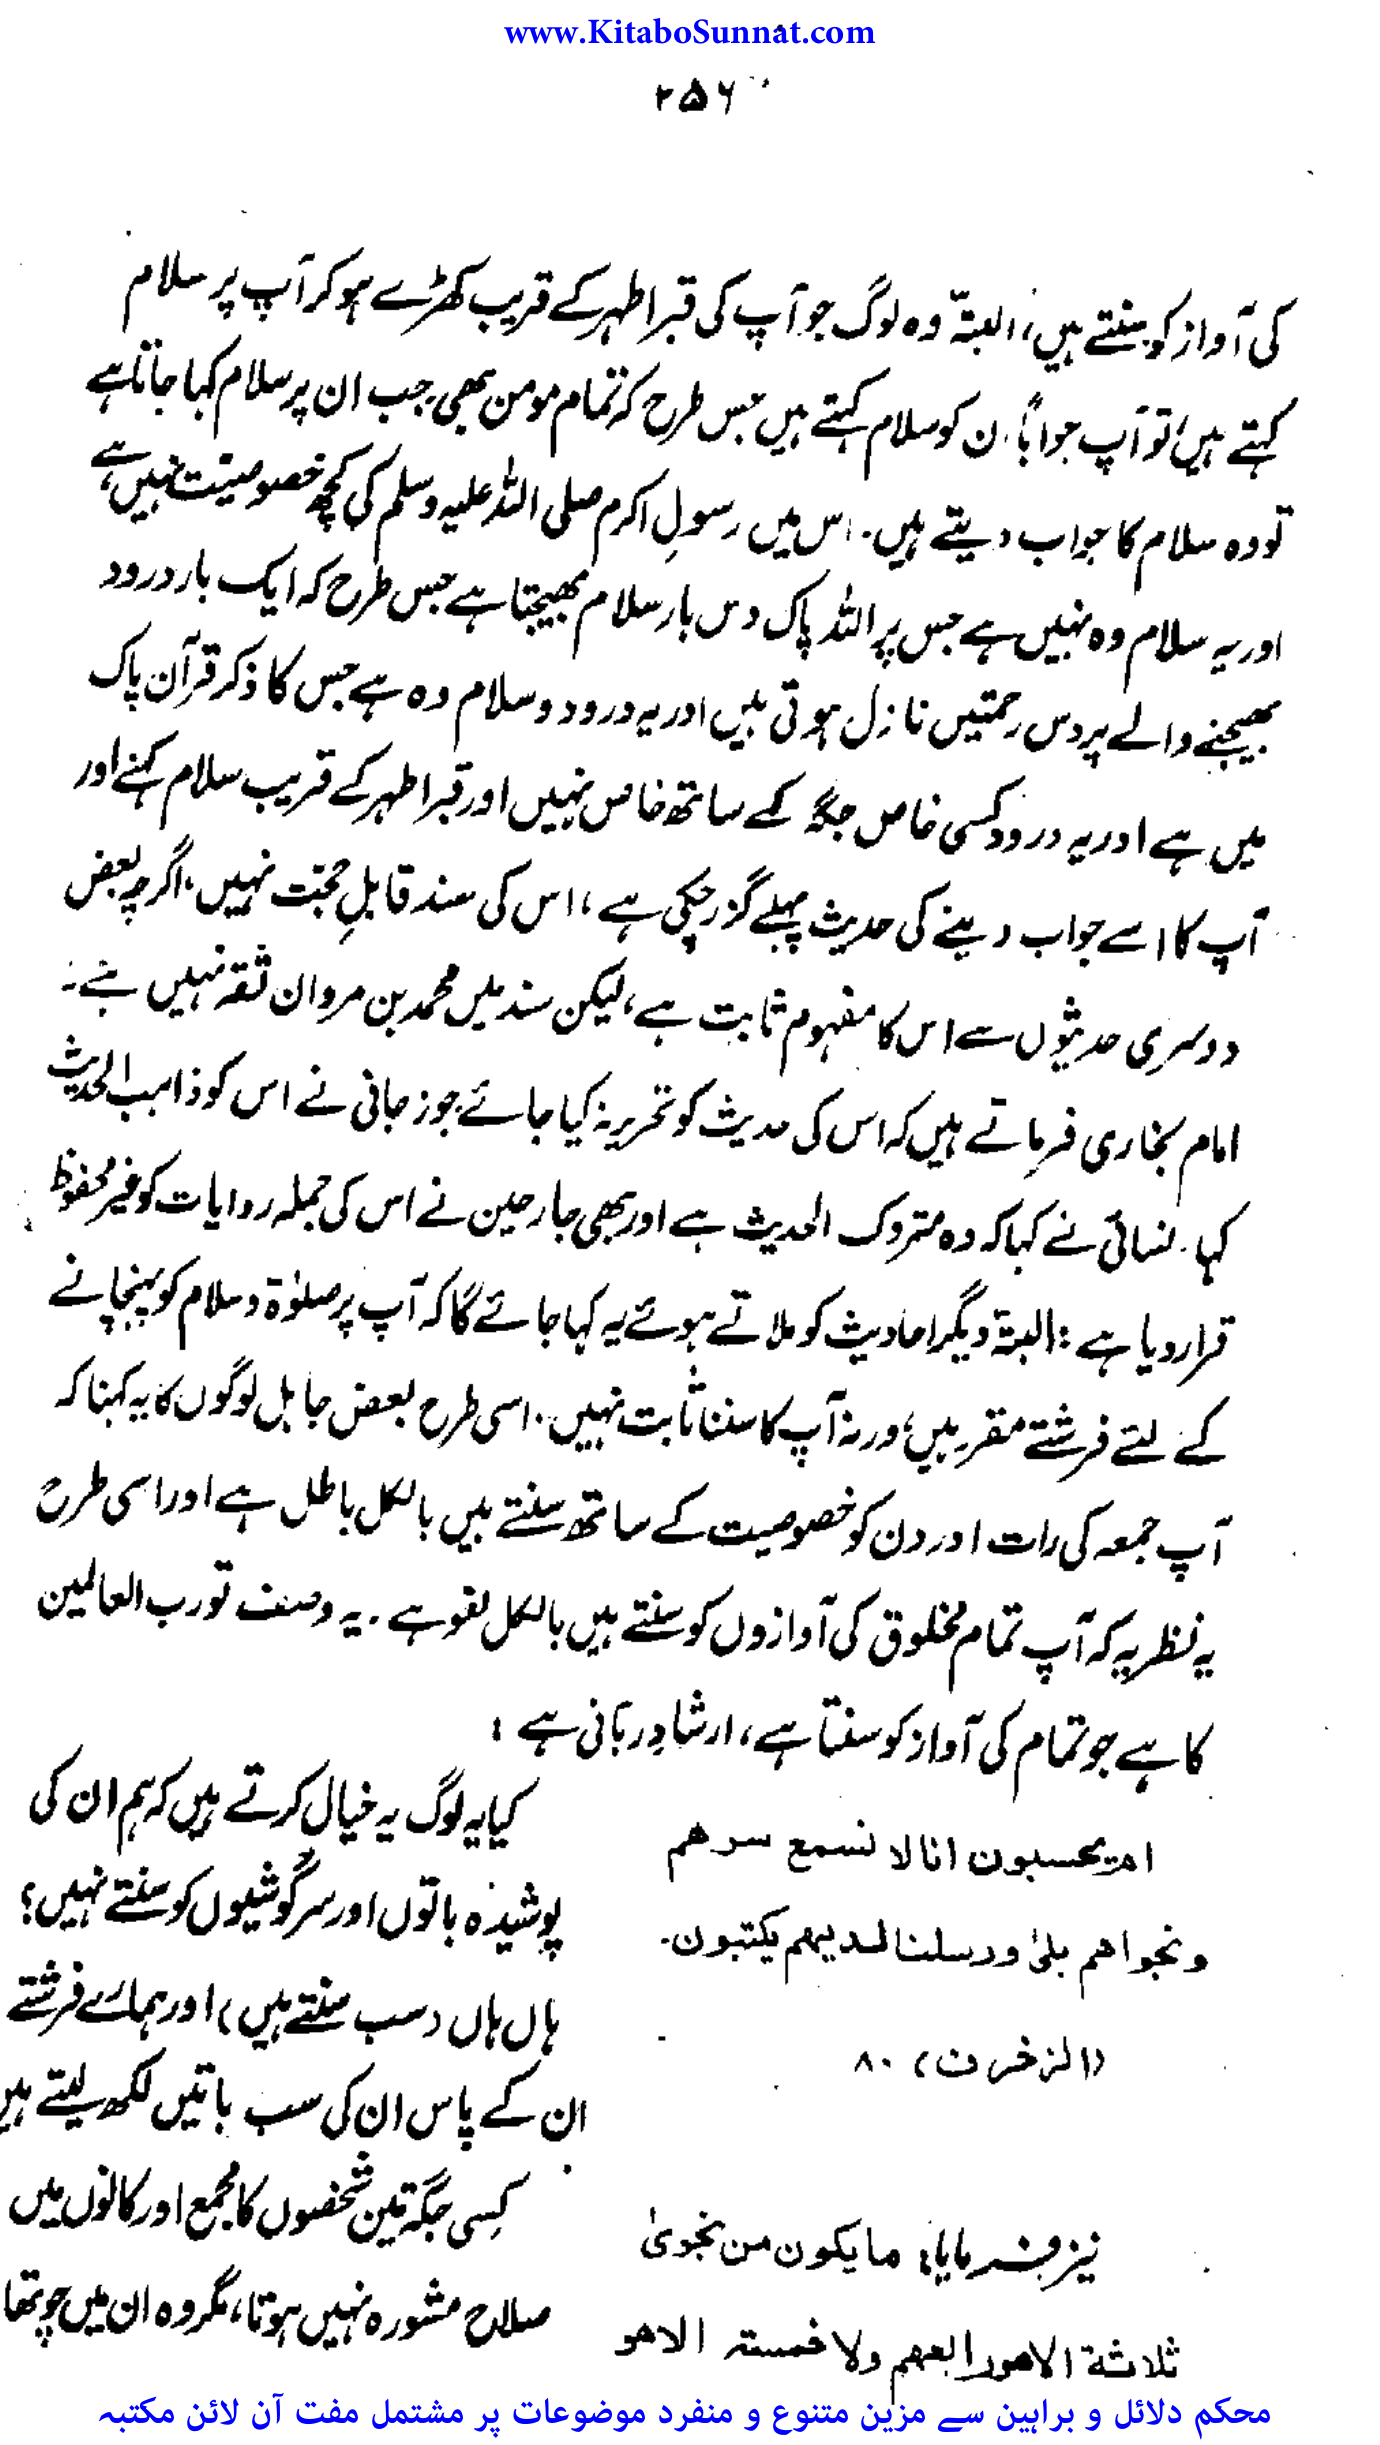 www.KitaboSunnat.com
۲۵۶
کی آواز کو سنتے ہیں، البتہّ وہ لوگ جو آپ کی قبر اطہر کے قریب کھڑے ہو کر آپ پر سلام
کہتے ہیں تو آپ جواباً ان کو سلام کہتے ہیں جس طرح کہ تمام مومن بھی جب ان پر سلام کہا جاتا ہے
تو وہ سلام کا جواب دیتے ہیں۔ اس میں رسولِ اکرم صلی اللہ علیہ وسلم کی کچھ خصوصیّت نہیں ہے
اور یہ سلام وہ نہیں ہے جس پر اللہ پاک دس بار سلام بھیجتا ہے جس طرح کہ ایک بار درود
بھیجنے والے پر دس رحمتیں نازل ہوتی ہیں اور یہ درود و سلام وہ ہے جس کا ذکر قرآن پاک
میں ہے اور یہ درود کسی خاص جگہ کے ساتھ خاص نہیں اور قبر اطہر کے قریب سلام کہنے اور
آپ کا اسے جواب دینے کی حدیث پہلے گزر چکی ہے، اس کی سند قابلِ حجّت نہیں، اگرچہ بعض
دوسری حدیثوں سے اس کا مفہوم ثابت ہے، لیکن سند میں محمد بن مروان ثقہ نہیں ہے۔
امام بخاری فرماتے ہیں کہ اس کی حدیث کو تحریر نہ کیا جائے جوزجانی نے اس کو ذاہب الحدیث
کہا۔ نسائی نے کہا کہ وہ متروک الحدیث ہے اور بھی جارحین نے اس کی جملہ روایات کو غیر محفوظ
قرار دیا ہے: البتہّ دیگر احادیث کو ملاتے ہوئے یہ کہا جائے گا کہ آپ پر صلوٰۃ و سلام کو پہنچانے
کے لئے فرشتے مقرر ہیں، ورنہ آپ کا سننا ثابت نہیں۔ اسی طرح بعض جاہل لوگوں کا یہ کہنا کہ
آپ جمعہ کی رات اور دن کو خصوصیت کے ساتھ سنتے ہیں بالکل باطل ہے اور اسی طرح
یہ نظریہ کہ آپ تمام مخلوق کی آوازوں کو سنتے ہیں بالکل لغو ہے۔ یہ وصف تو رب العالمین
کا ہے جو تمام کی آواز کو سنتا ہے، ارشادِ ربانی ہے :
ام یحسبون انا لا نسمع سرھم
ونجواھم بلیٰ ورسلنا لدیھم یکتبون۔
(الزخرف) ۸۰
کیا یہ لوگ یہ خیال کرتے ہیں کہ ہم ان کی
پوشیدہ باتوں اور سرگوشیوں کو سنتے نہیں؟
ہاں ہاں (سب سنتے ہیں) اور ہمارے فرشتے
ان کے پاس ان کی سب باتیں لکھ لیتے ہیں
نیز فرمایا: ما یکون من نجویٰ
ثلاثۃ الا ھو رابعھم ولا خمستہ الا ھو
کسی جگہ تین شخصوں کا مجمع اور کانوں میں
صلاح مشورہ نہیں ہوتا، مگر وہ ان میں چوتھا
محکم دلائل و براہین سے مزین متنوع و منفرد موضوعات پر مشتمل مفت آن لائن مکتبہ